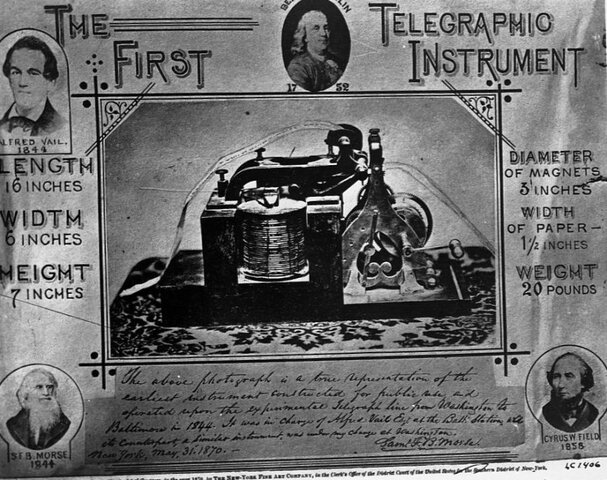 THE FIRST
TELEGRAPHIC INSTRUMENT
BE LIN
17 52
ALFRED VAIL.
1844
LENGTH
16 INCHES
WIDTH
6 INCHES
HEIGHT
7 INCHES
DIAMETER
OF MAGNETS
3 INCHES
WIDTH
OF PAPER -
1 1/2 INCHES
WEIGHT
20 POUNDS
The above photograph is a true representation of the
earliest instrument constructed for public use, and
operated upon the experimental telegraph line from Washington to
Baltimore in 1844. It was in charge of Alfred Vail Esq. at the Balt. Station, and
its Counterpart, a similar instrument, was under my charge at Washington.
New York, May, 31. 1870. - Saml. F. B. Morse.
S.F.B. MORSE
1844
CYRUS W. FIELD
1858
in the year 1870, by THE NEW-YORK FINE ART COMPANY, in the Clerk's Office of the District Court of the United States for the Southern District of New-York.
LC1406